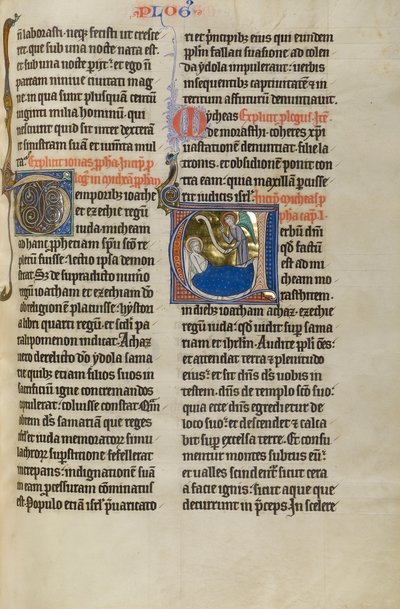 PLOG
n laborasti. neq; fecisti ut cresce
ret. que sub una nocte nata est.
et sub una nocte periit. et ego n
parcam ninive civitati mag
ne. in qua sunt plusquam centū
viginti milia hominum. qui
nesciunt quid sit inter dexterā
et sinistram suā et iumēta mul
ta. Explicit ionas ppha. Incip p
log in micheam pphā
Temporibus ioathe
et ezechie regū
iuda. micheam
ad hanc pphetiam spū sco re
pletum fuisse. lectio ipsa demon
strat. Sz de supradicto numo
regū ioatham et ezechiam do
obreligionem placuisse. hyston
a libri quarti regū. et scdi pa
ralipomenon indicat. Achaz
vero derelicto do ydola sama
rie quibz etiam filios suos in
sacrificiū igne concremandos
optulerat. coluisse constat. Qm
obrem dns samariam que reges
isrl et iuda memoratos simu
lachrorz supstitione fefellerat
increpans. indignationem suā
in eam pcessuram cōminatus
est. Populo etiā isrl pvaricato
ri et pncipibz eius qui eundem
pplm fallaci suasione ad colen
da ydola impulerant. verbis
insequentibz captivitatē et in
teritum affuturū denunciavit.
Mycheas Explicit plogus. Itē.
de morasthi. coheres xpi
vastationē denunciat. filie la
tronis. et obsidionem ponit con
tra eam. quia maxillā pcusse
rit iudicis isrl. Incip micheas p
pha cap. I.
Verbū dni
qd factū
est ad mi
cheam mo
rasthitem.
in diebz ioatham achaz. ezechie
regū iuda. qd vidit sup sama
riam et ihrlm. Audite ppli oēs.
et attendat terra et plenitudo
eius. et sit dns ds vobis in
testem. dns de templo sco suo.
quia ecce dns egredietur de
loco suo. et descendet et calca
bit sup excelsa terre. Et consu
mentur montes subtus eū.
et valles scindent. sicut cera
a facie ignis. sicut aque que
decurrunt in pceps. In scelere